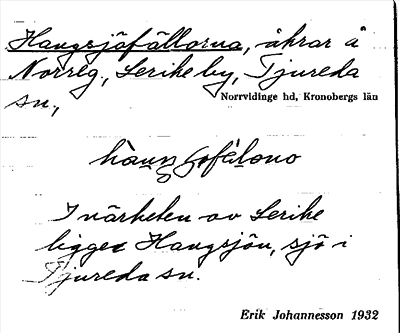 Haugsjöfällorna, åkrar å
Norreg, Lerikeby, Tjureda
sn,
Norrvidinge hd, Kronobergs län
I närheten av Lerike
ligger Haugsjön, sjö i
Tjureda sn.
Erik Johannesson 1932